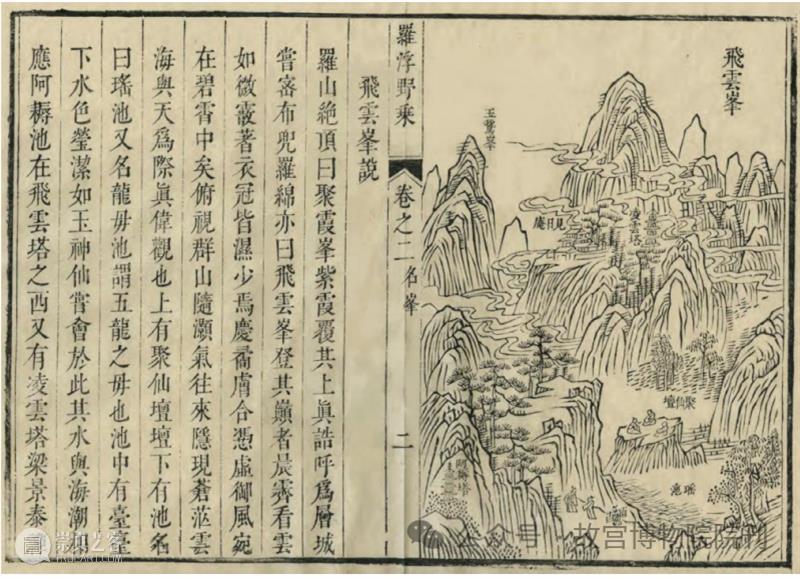 飛雲峯
玉鵞峯
見日庵
凌雲塔
聚仙壇
瑶池
羅浮野乘
卷之二
名峯
二
飛雲峯說
羅山絶頂曰聚霞峯紫霞覆其上眞誥呼爲層城
嘗審布兜羅綿亦曰飛雲峯登其巔者晨霽看雲
如微霰著衣冠皆濕少焉慶霱膚合憑虛御風宛
在碧霄中矣俯視群山隨灝氣往來隱現蒼茫雲
海與天爲際眞偉觀也上有聚仙壇壇下有池名
曰瑤池又名龍毋池謂五龍之毋也池中有臺臺
下水色瑩潔如玉神仙嘗會於此其水與海潮相
應阿耨池在飛雲塔之西又有凌雲塔梁景泰
公众号 · 故宫博物院院刊